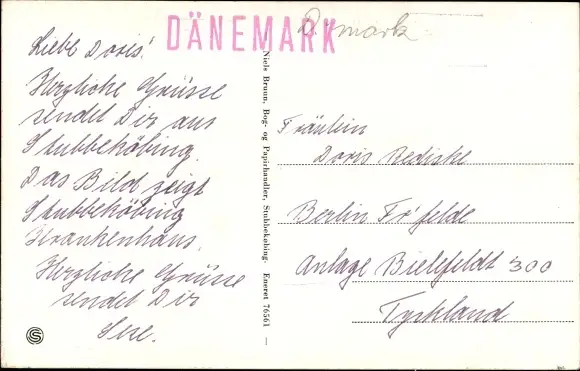 DÄNEMARK
Liebe Doris!
Herzliche Grüsse
sendet Dir aus
Stubbeköbing.
Das Bild zeigt
Stubbeköbing
Krankenhaus.
Herzliche Grüsse
sendet Dir
Niels Bruun, Bog- og Papirhandler, Stubbekøbing Eneret 76561
Fräulein
Doris Rediske
Berlin Fr'felde
Anlage Bielefeldt 300
Tyskland